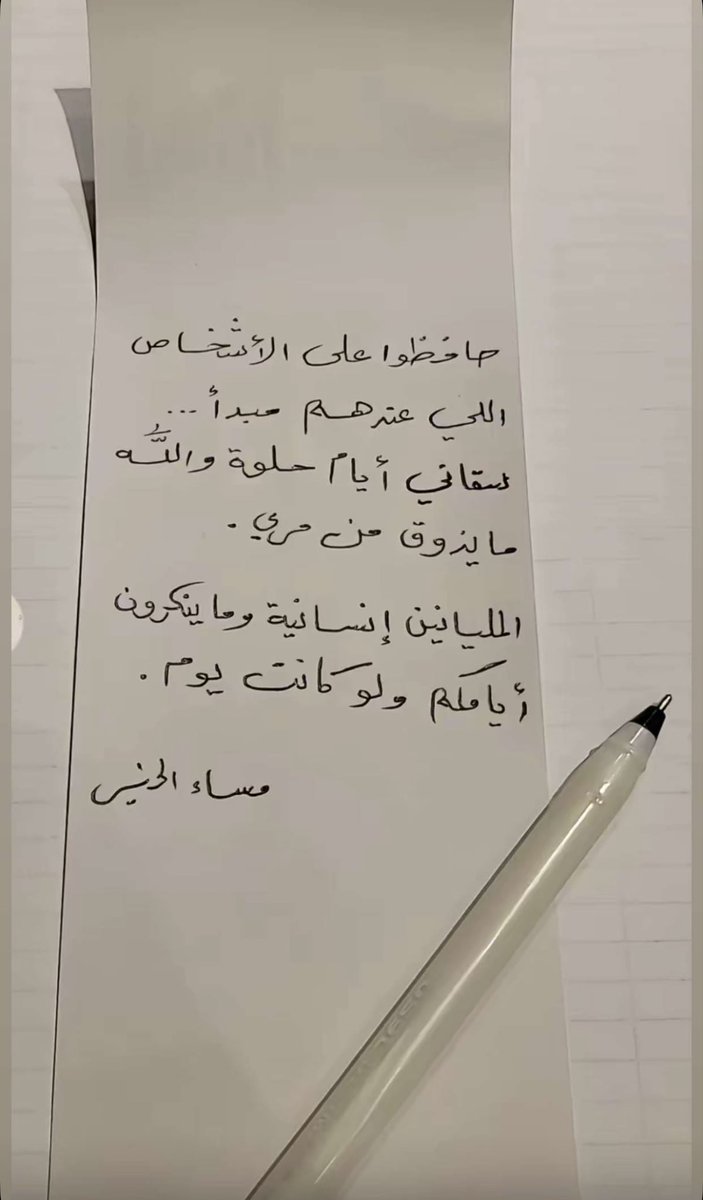 حافظوا على الأشخاص
اللي عندهم مبدأ ...
سقاني أيام حلوة واللَّه
ما يذوق من مري .
المليانين إنسانية وما ينكرون
أيامكم ولو كانت يوم .
مساء الخير